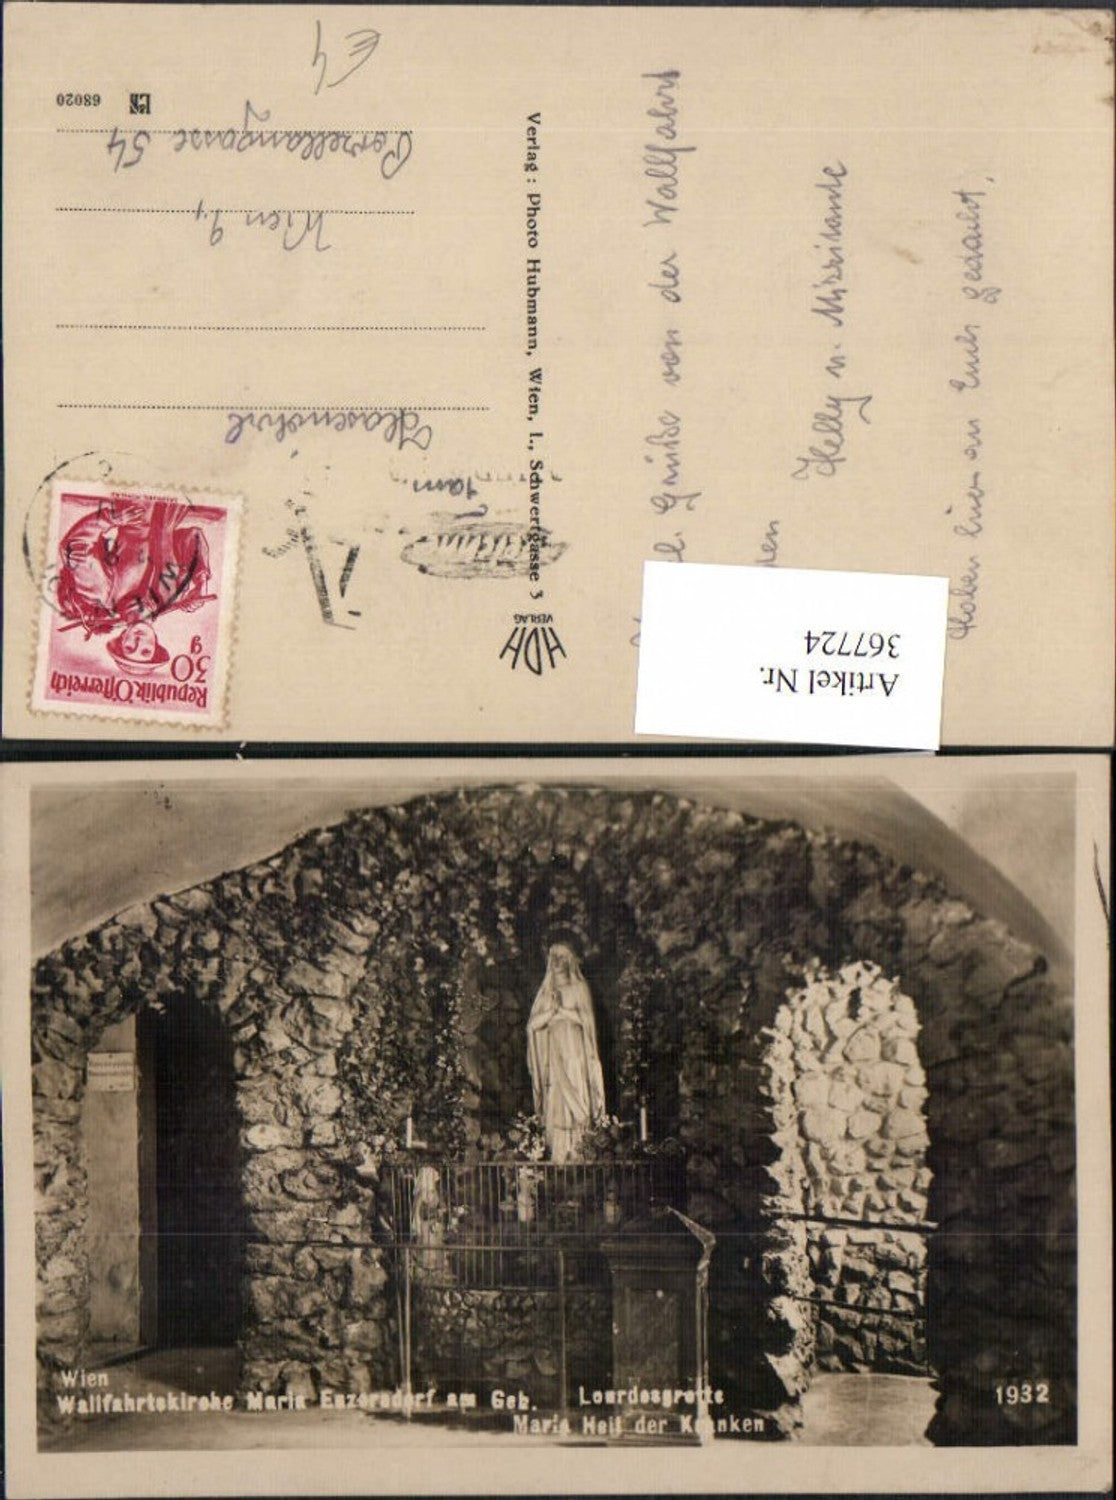 €4
68020
Porzellangasse 54
Wien 9.,
Hasenöhrl
Fam.
WIEN
Republik Österreich
30
g
Verlag: Photo Hubmann, Wien, I., Schwertgasse 3
HDH
VERLAG
Grüße von der Wallfahrt
Helly u.
Haben hier an Euch gedacht.
Artikel Nr.
367724
Wien
Wallfahrtskirche Maria Enzersdorf am Geb. Lourdesgrotte
Maria Heil der Kranken
1932